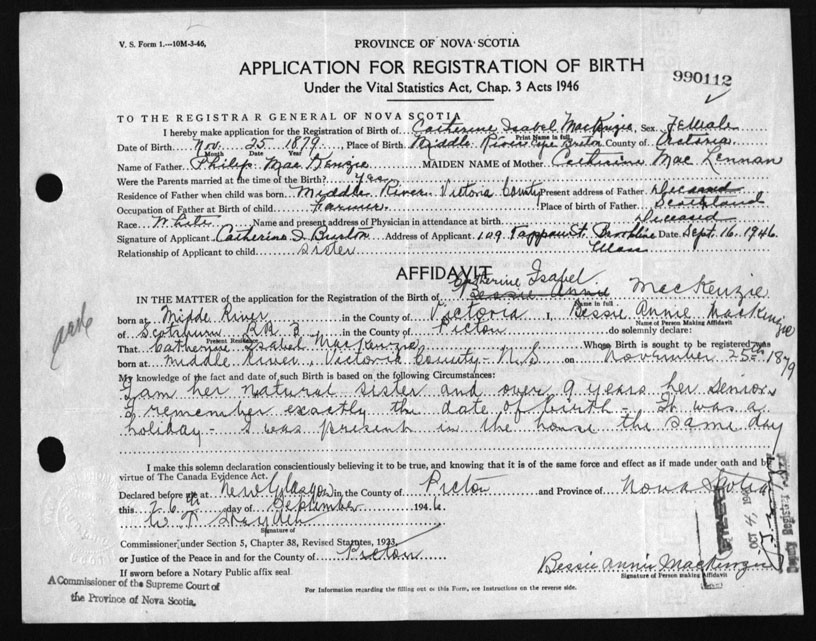 V. S. Form 1.—10M-3-46,
PROVINCE OF NOVA SCOTIA
APPLICATION FOR REGISTRATION OF BIRTH
Under the Vital Statistics Act, Chap. 3 Acts 1946
990112
TO THE REGISTRAR GENERAL OF NOVA SCOTIA
I hereby make application for the Registration of Birth of Catherine Isabel MacKenzie, Sex Female
Print Name in full
Date of Birth Nov. 25 1879 Place of Birth Middle River Cape Breton County of Victoria
Month Date Year
Name of Father Philip MacKenzie MAIDEN NAME of Mother Catherine MacLennan
Were the Parents married at the time of the Birth? Yes
Residence of Father when child was born Middle River Victoria County Present address of Father Deceased
Occupation of Father at Birth of child Farmer. Place of birth of Father Scotland
Race White Name and present address of Physician in attendance at birth Deceased
Signature of Applicant Catherine I Address of Applicant 109 Tappan St. Brookline Date Sept. 16 1946
Mass
Relationship of Applicant to child sister
AFFIDAVIT
Catherine Isabel
IN THE MATTER of the application for the Registration of Birth of Bessie Annie MacKenzie
Name in full
born at Midde River in the County of Victoria I, Bessie Annie MacKenzie
Name of Person Making Affidavit
of Scotsburn R.R. 3 in the County of Picton do solemnly declare:
Present Residence
That Catherine Isabel MacKenzie Whose Birth is sought to be registered was
born at Middle River, Victoria County - N.S on November 25th 1879
My knowledge of the fact and date of such Birth is based on the following Circumstances:
I am her natural sister and over 9 years her senior
I remember exactly the date of birth - It was a
holiday - I was present in the house the same day
I make this solemn declaration conscientiously believing it to be true, and knowing that it is of the same force and effect as if made under oath and by
virtue of The Canada Evidence Act.
Declared before me at New Glasgow in the County of Picton and Province of Nova Scotia
this 26th day of September 1946
W.
Signature of
Commissioner under Section 5, Chapter 38, Revised Statutes, 1923,
or Justice of the Peace in and for the County of Picton
If sworn before a Notary Public affix seal.
Bessie Annie MacKenzie
Signature of Person Making Affidavit
A Commissioner of the Supreme Court of
the Province of Nova Scotia.
For Information regarding the filling out of this Form, see Instructions on the reverse side.
FILED
OCT 4 1946
Deputy Registrar